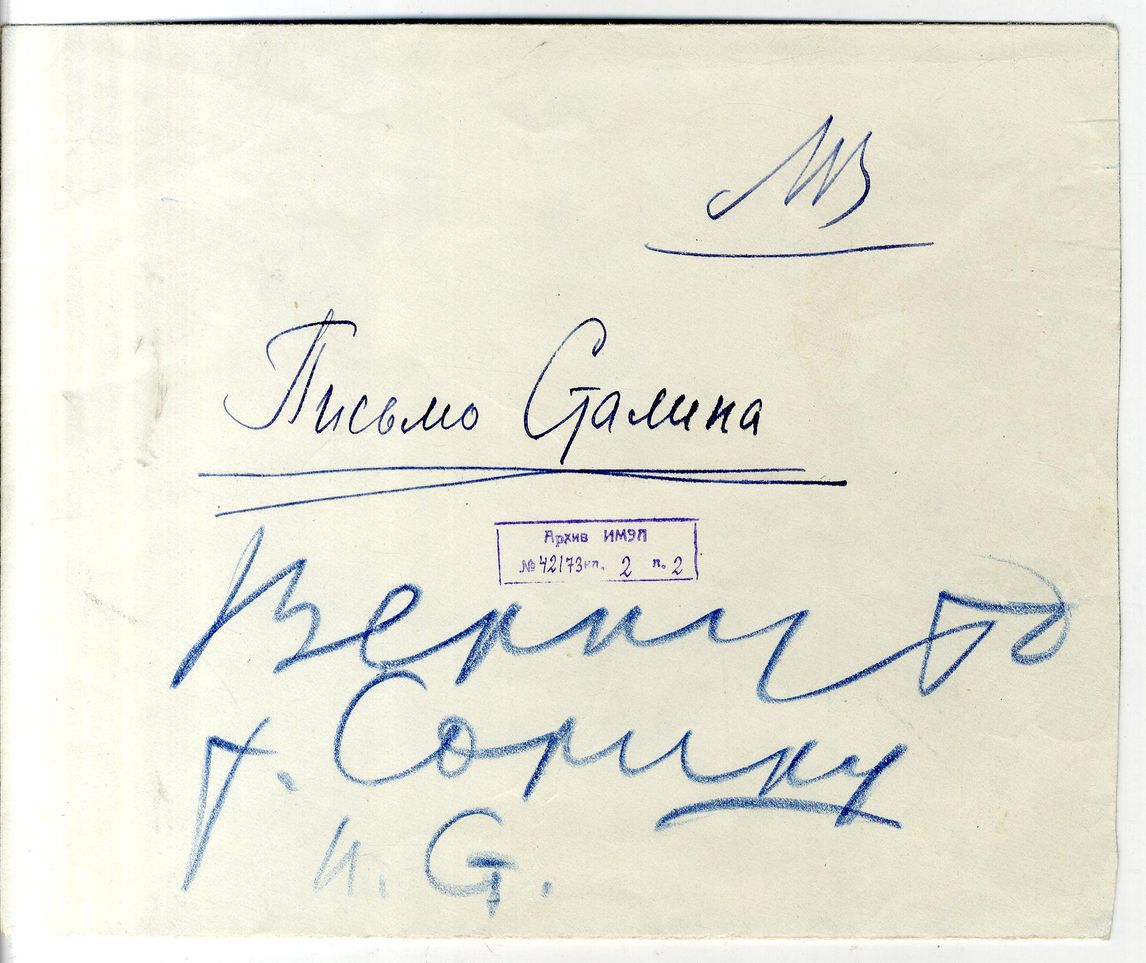 Письмо Сталина
Архив ИМЭЛ
№ 42173 кп. 2 п. 2
Вернуть
т. Сорину
И. Ст.